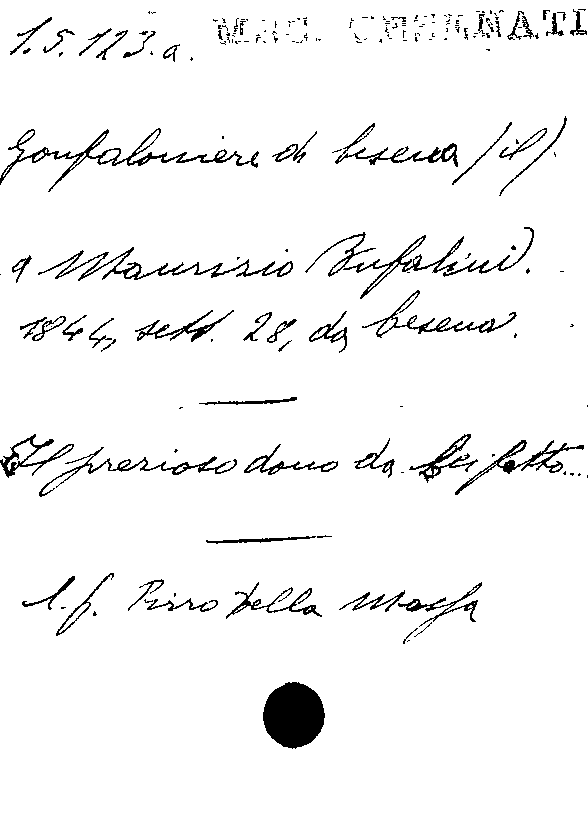 1.5.123.a. MSS. CESENATI
Gonfaloniere di Cesena (il)
a Maurizio Bufalini.
1844, sett. 28, da Cesena.
Il prezioso dono da Lei fatto....
l.f. Pirro Della Massa